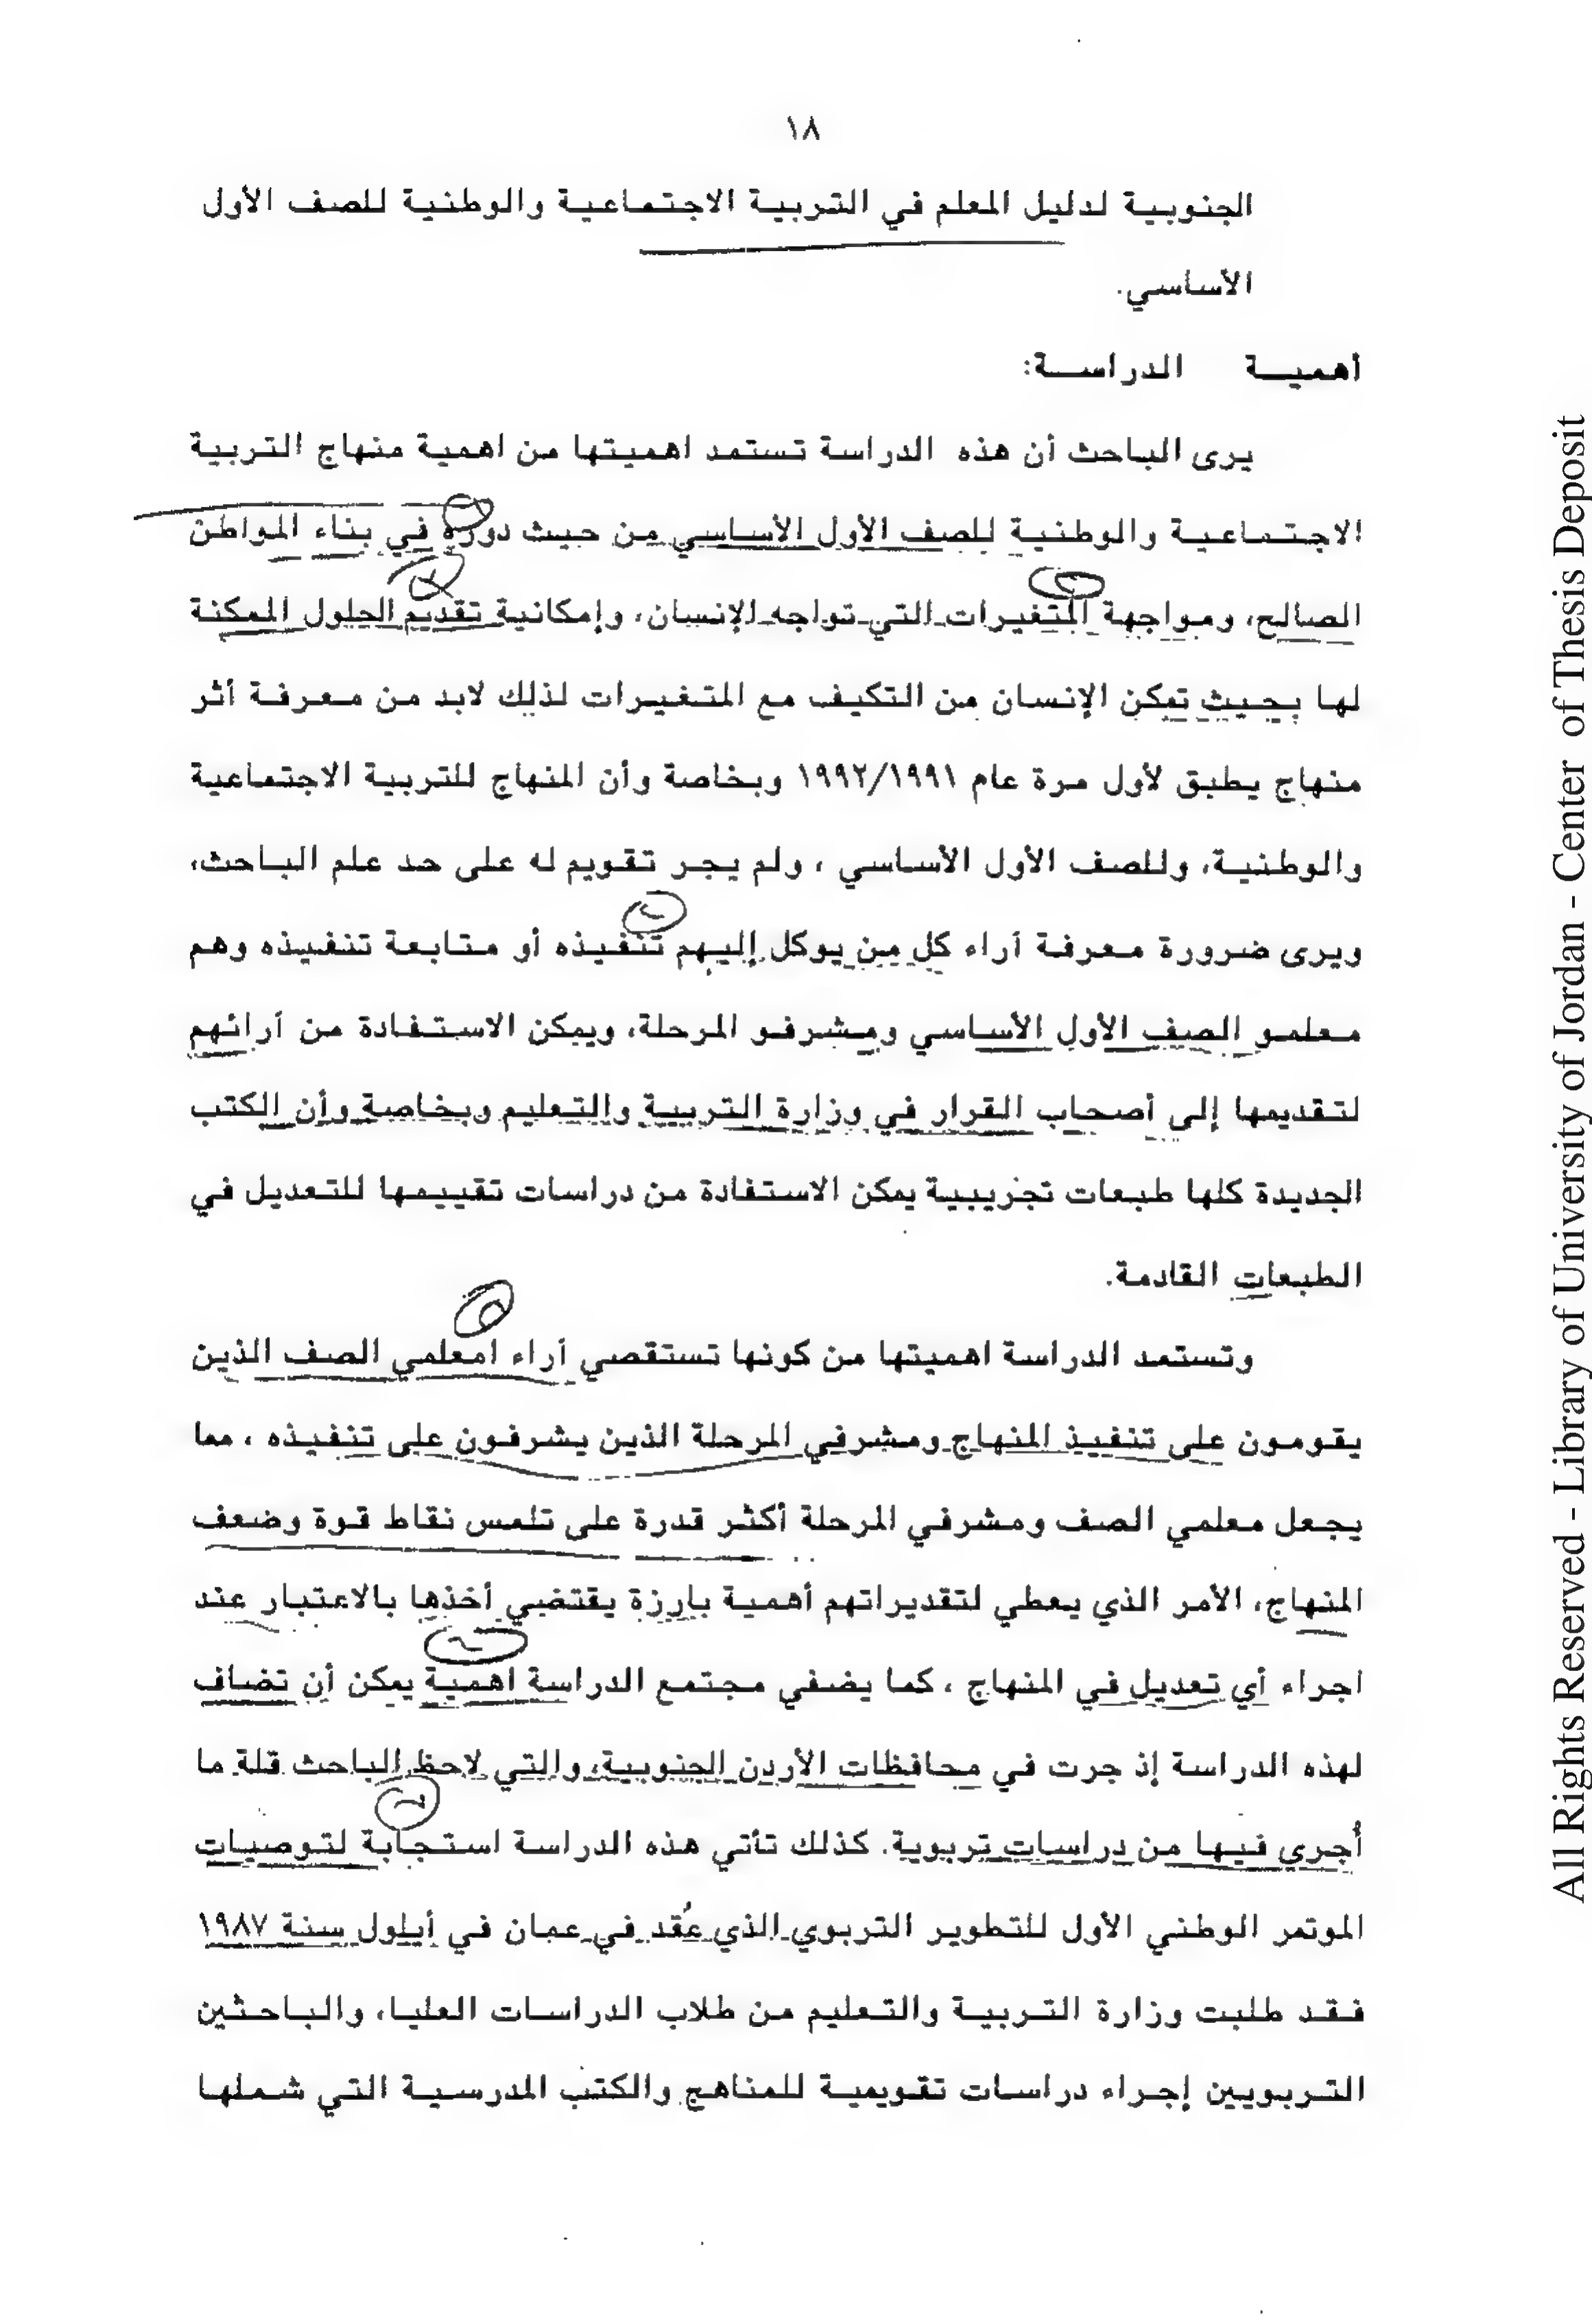 ١٨
الجنوبية لدليل المعلم في التربية الاجتماعية والوطنية للصف الأول
الأساسي.
أهمية الدراسة:
يرى الباحث أن هذه الدراسة تستمد اهميتها من اهمية منهاج التربية
الاجتماعية والوطنية للصف الأول الأساسي من حيث دوره في بناء المواطن
الصالح، ومواجهة المتغيرات التي تواجه الإنسان، وإمكانية تقديم الحلول الممكنة
لها بحيث تمكن الإنسان من التكيف مع المتغيرات لذلك لابد من معرفة أثر
منهاج يطبق لأول مرة عام ١٩٩٢/١٩٩١ وبخاصة وأن المنهاج للتربية الاجتماعية
والوطنية، وللصف الأول الأساسي ، ولم يجر تقويم له على حد علم الباحث،
ويرى ضرورة معرفة آراء كل من يوكل إليهم تنفيذه أو متابعة تنفيذه وهم
معلمو الصف الأول الأساسي ومشرفو المرحلة، ويمكن الاستفادة من آرائهم
لتقديمها إلى أصحاب القرار في وزارة التربية والتعليم وبخاصة وأن الكتب
الجديدة كلها طبعات تجريبية يمكن الاستفادة من دراسات تقييمها للتعديل في
الطبعات القادمة.
وتستمد الدراسة اهميتها من كونها تستقصي آراء امعلمي الصف الذين
يقومون على تنفيذ المنهاج ومشرفي المرحلة الذين يشرفون على تنفيذه ، مما
يجعل معلمي الصف ومشرفي المرحلة أكثر قدرة على تلمس نقاط قوة وضعف
المنهاج، الأمر الذي يعطي لتقديراتهم أهمية بارزة يقتضي أخذها بالاعتبار عند
اجراء أي تعديل في المنهاج ، كما يضفي مجتمع الدراسة اهمية يمكن أن تضاف
لهذه الدراسة إذ جرت في محافظات الأردن الجنوبية، والتي لاحظ الباحث قلة ما
أُجري فيها من دراسات تربوية. كذلك تأتي هذه الدراسة استجابة لتوصيات
الموتمر الوطني الأول للتطوير التربوي الذي عُقد في عمان في أيلول سنة ١٩٨٧
فقد طلبت وزارة التربية والتعليم من طلاب الدراسات العليا، والباحثين
التربويين إجراء دراسات تقويمية للمناهج والكتب المدرسية التي شملها
All Rights Reserved - Library of University of Jordan - Center of Thesis Deposit